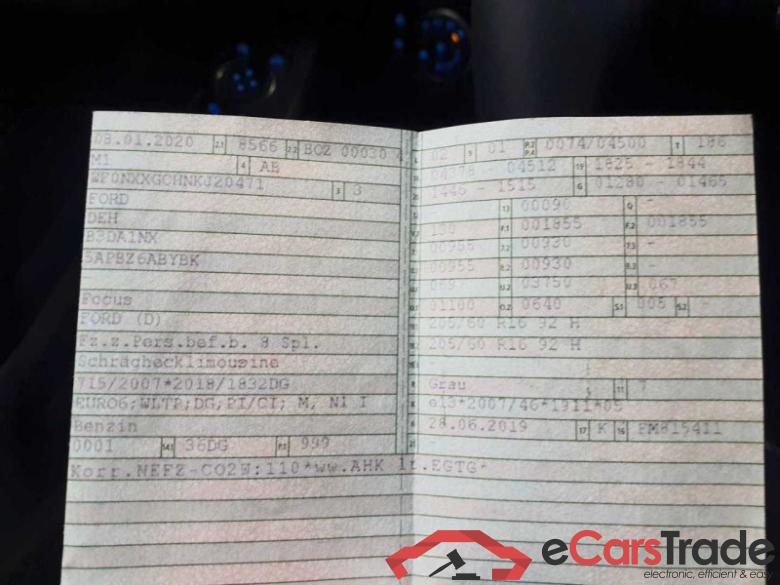 08.01.2020 2.1 8566 2.2 BOZ 00030
M1 4 AB
WF0NXXGCHNKJ20471 3 3
FORD
DEH
B3DA1NX
5APBZ6ABYBK
Focus
FORD (D)
Fz.z.Pers.bef.b. 8 Spl.
Schräghecklimousine
715/2007*2018/1832DG
EURO6;WLTP;DG,PI/CI; M, N1 I
Benzin
0001 14.1 36DG P.1 999
Korr.NEFZ-CO2W:110*ww.AHK lt.EGTG*
02 9 01 P.2 P.4 0074/04500 T 186
04378 - 04512 19 1825 - 1844
1446 - 1515 G 01280 - 01465
13 00090 Q -
F.1 001855 F.2 001855
00955 7.2 00930 7.3 -
00955 8.2 00930 8.3 -
U.2 03750 U.3 067
01100 O.2 0640 S.1 005 S.2 -
205/60 R16 92 H
205/60 R16 92 H
Grau 11 7
e13*2007/46*1911*05
28.06.2019 17 K 16 FM815411
eCarsTrade
electronic, efficient & eas